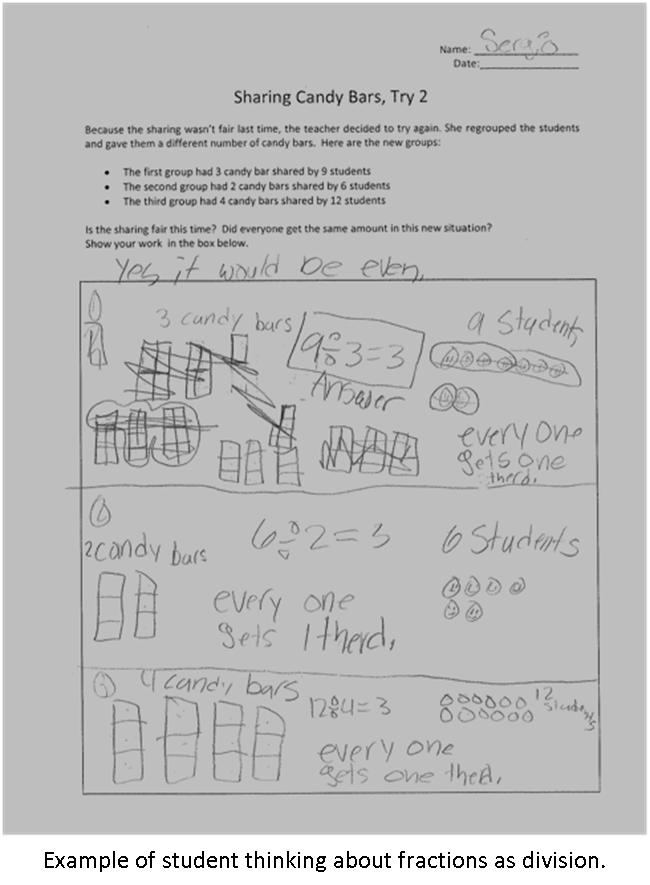 Name: Sergio
Date:
Sharing Candy Bars, Try 2
Because the sharing wasn't fair last time, the teacher decided to try again. She regrouped the students
and gave them a different number of candy bars. Here are the new groups:
• The first group had 3 candy bar shared by 9 students
• The second group had 2 candy bars shared by 6 students
• The third group had 4 candy bars shared by 12 students
Is the sharing fair this time? Did everyone get the same amount in this new situation?
Show your work in the box below.
Yes it would be even.
3 candy bars
9÷3=3
Answer
9 Students
every one
gets one
therd.
2
2 candy bars
6÷2=3
6 Students
every one
gets 1 therd.
4 candy bars
12÷4=3
12
Students
every one
gets one therd.
Example of student thinking about fractions as division.